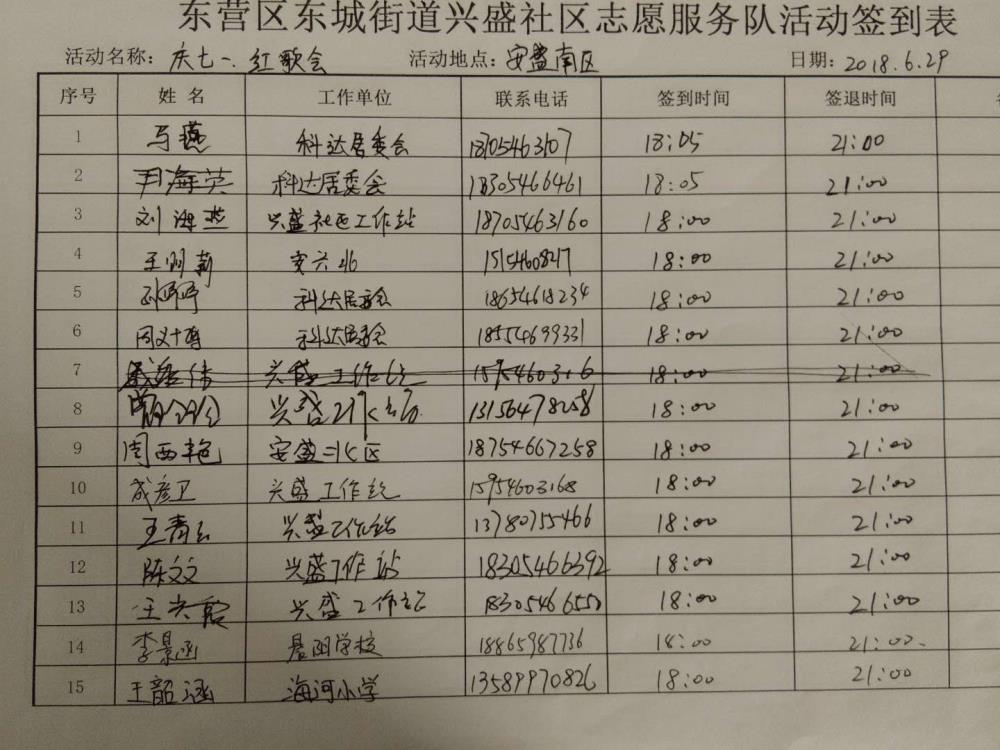 东营区东城街道兴盛社区志愿服务队活动签到表
活动名称：庆七一、红歌会 活动地点：安盛南区 日期：2018.6.29
序号 姓名 工作单位 联系电话 签到时间 签退时间
1 马燕 科达居委会 18105463107 18:05 21:00
2 尹海英 科达居委会 18305466461 18:05 21:00
3 刘海燕 兴盛社区工作站 18705463160 18:00 21:00
4 王明莉 安六北 18:00 21:00
5 孙婷婷 科达居委会 18654618234 18:00 21:00
6 科达居委会 18554699331 18:00 21:00
7 兴盛工作站 18:00 21:00
8 13156478258 18:00 21:00
9 周西艳 安盛北区 18754667258 18:00 21:00
10 成彦卫 兴盛工作站 15954603168 18:00 21:00
11 王青云 兴盛工作站 13780755466 18:00 21:00
12 陈文文 兴盛工作站 18305466392 18:00 21:00
13 王兴霞 兴盛工作站 18305466550 18:00 21:00
14 李景函 晨阳学校 18865987736 18:00 21:00
15 王韶涵 海河小学 13589970826 18:00 21:00